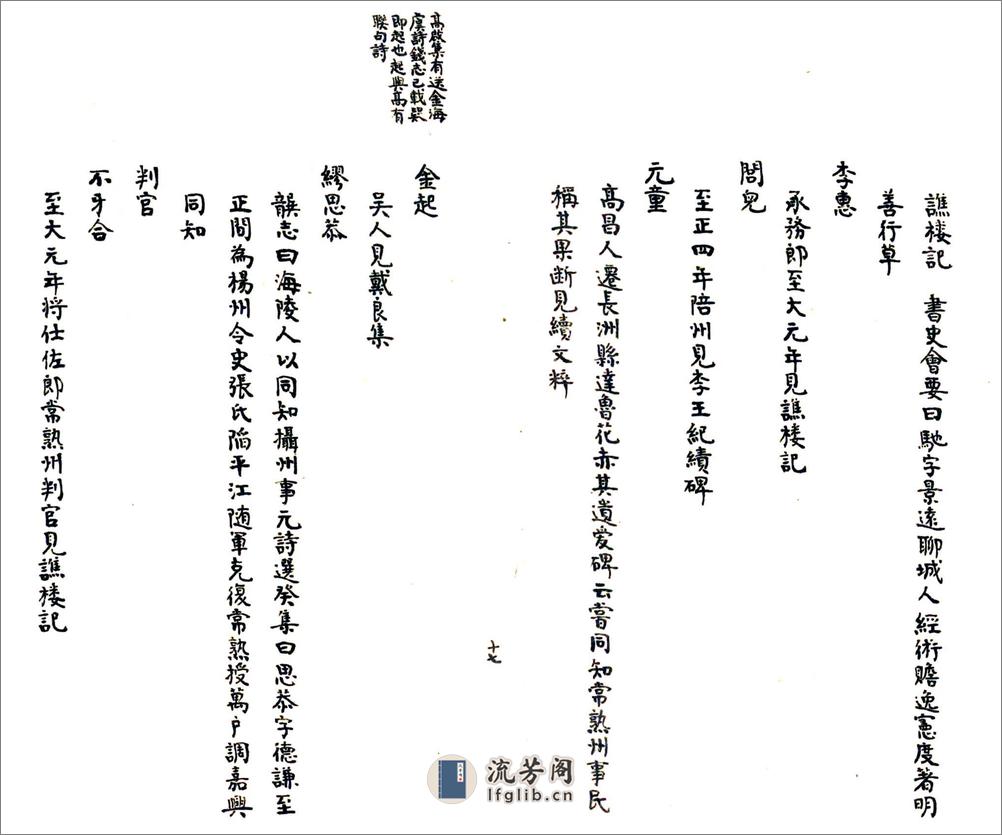 譙楼記　書史會要曰馳字景遠聊城人經術贍逸憲度著明
善行草
李惠
承務郎至大元年見譙楼記
閭兒
至正四年陪州見李王紀績碑
元童
髙昌人遷長洲縣達魯花赤其遺爱碑云嘗同知常熟州事民
稱其果断見續文粹
十七
髙啟集有送金海
虞詩錢志已載疑
即起也起與髙有
聮句詩
金起
吴人見戴良集
繆思恭
龔志曰海陵人以同知攝州事元詩選癸集曰思恭字德謙至
正間為楊州令史張氏陷平江随軍克復常熟授萬户調嘉興
同知
判官
不牙合
至大元年将仕佐郎常熟州判官見譙楼記
流芳阁
lfglib.cn